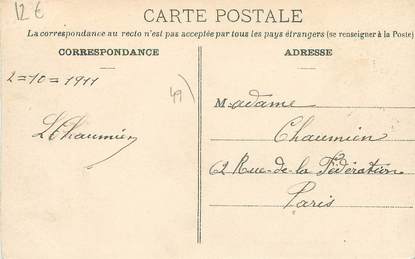 12 €
CARTE POSTALE
La correspondance au recto n'est pas acceptée par tous les pays étrangers (se renseigner à la Poste)
CORRESPONDANCE
ADRESSE
2=10=1911
49
L Chaumien
Madame
Chaumien
62 Rue-de-la Fédération
Paris